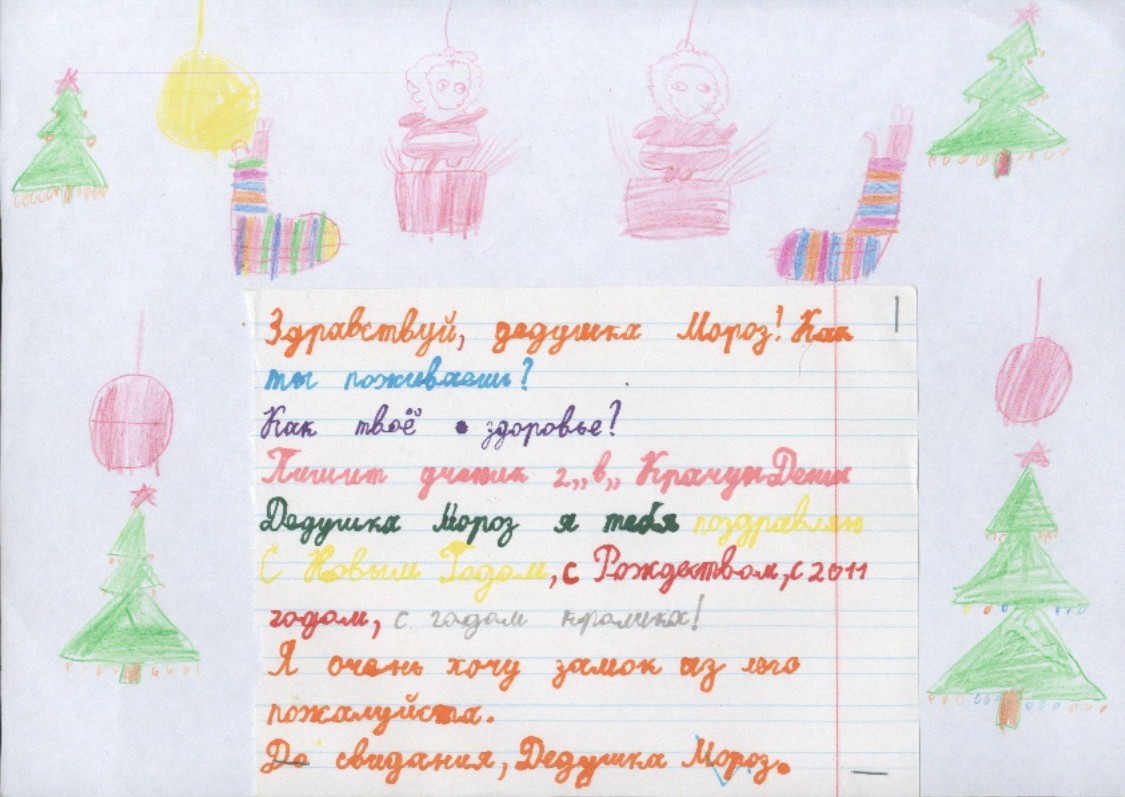 Здравствуй, дедушка Мороз! Как
ты поживаешь?
Как твоё здоровье?
Пишит учиник 2 „в„ Крачун Денис
Дедушка Мороз я тебя поздравляю
С Новым Годом, с Рождеством, с 2011
годом, с годом кролика!
Я очень хочу замок из лего
пожалуйста.
До свидания, Дедушка Мороз.